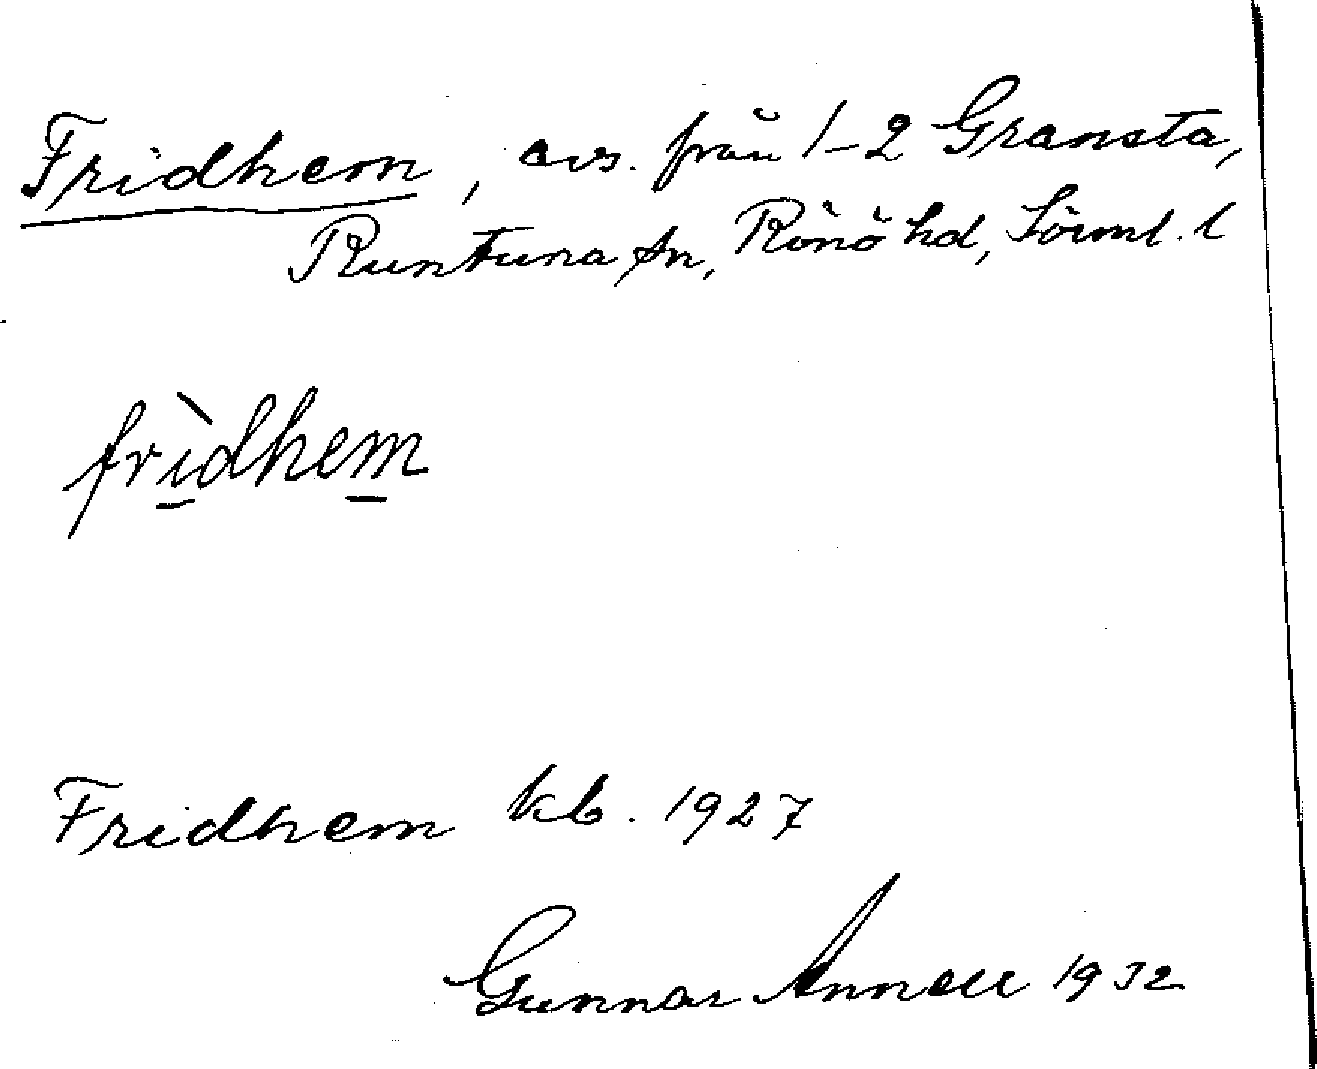 Fridhem, avs. från 1-2 Gransta,
Runtuna sn, Rönö hd, Sörml. l
frì̲dhem̲
Fridhem kb. 1927
Gunnar Annell 1932